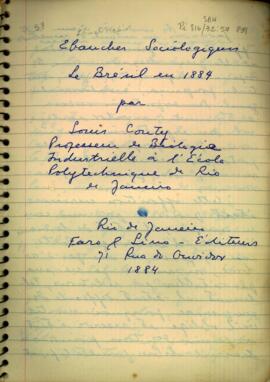 Ebauches Sociólogiques
Le Brésil en 1884
par
Louis Couty
Professeur de Biologia
Industrielle à l'École
Polytechnique de Rio
de Janeiro
Rio de Janeiro
Faro & Lino - Éditeurs
71 Rua do Ouvidor
1884